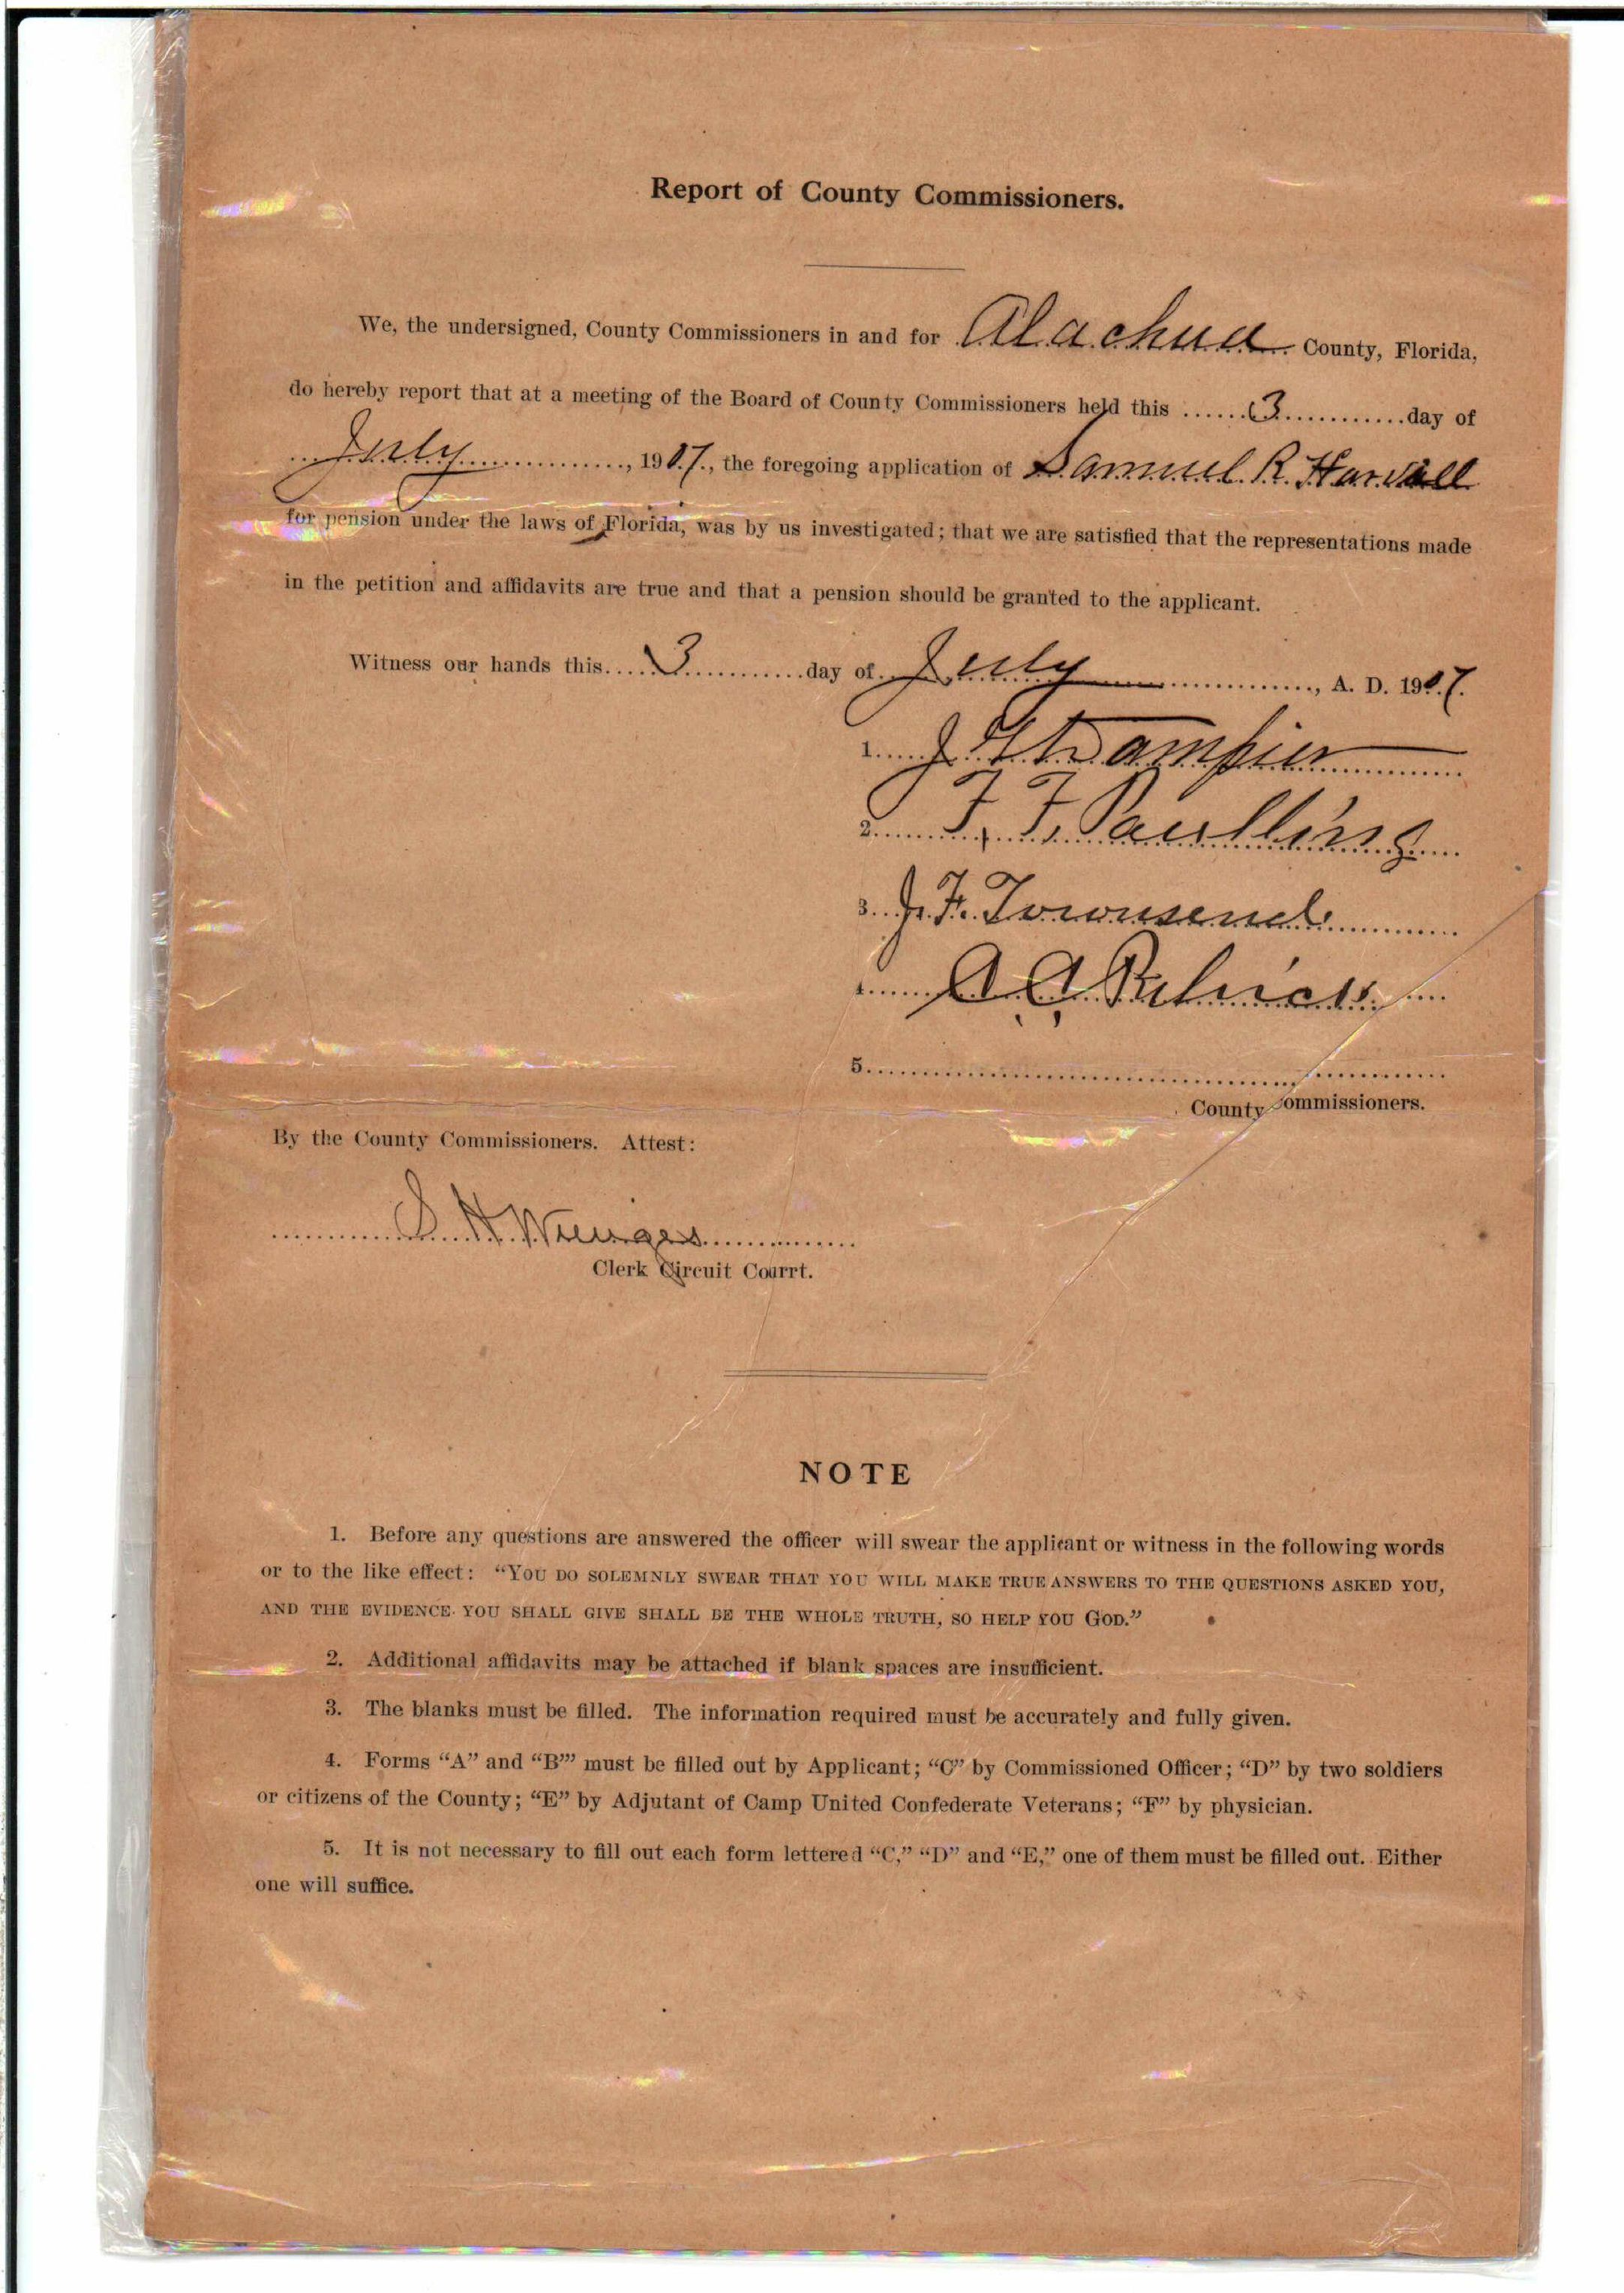 Report of County Commissioners.
We, the undersigned, County Commissioners in and for Alachua County, Florida,
do hereby report that at a meeting of the Board of County Commissioners held this ......3............day of
...July................., 1907., the foregoing application of Samuel R. Harvell
for pension under the laws of Florida, was by us investigated; that we are satisfied that the representations made
in the petition and affidavits are true and that a pension should be granted to the applicant.
Witness our hands this....3............day of..July......................., A. D. 1907.
1.....J. Dampier
2......F. F. Paulling
3...J. F. Townsend
4......A A
5.............................................
County Commissioners.
By the County Commissioners. Attest:
S. H. Wienges
Clerk Circuit Courrt.
NOTE
1. Before any questions are answered the officer will swear the applicant or witness in the following words
or to the like effect: “YOU DO SOLEMNLY SWEAR THAT YOU WILL MAKE TRUE ANSWERS TO THE QUESTIONS ASKED YOU,
AND THE EVIDENCE YOU SHALL GIVE SHALL BE THE WHOLE TRUTH, SO HELP YOU GOD.”
2. Additional affidavits may be attached if blank spaces are insufficient.
3. The blanks must be filled. The information required must be accurately and fully given.
4. Forms “A” and “B”’ must be filled out by Applicant; “C” by Commissioned Officer; “D” by two soldiers
or citizens of the County; “E” by Adjutant of Camp United Confederate Veterans; “F” by physician.
5. It is not necessary to fill out each form lettered “C,” “D” and “E,” one of them must be filled out. Either
one will suffice.